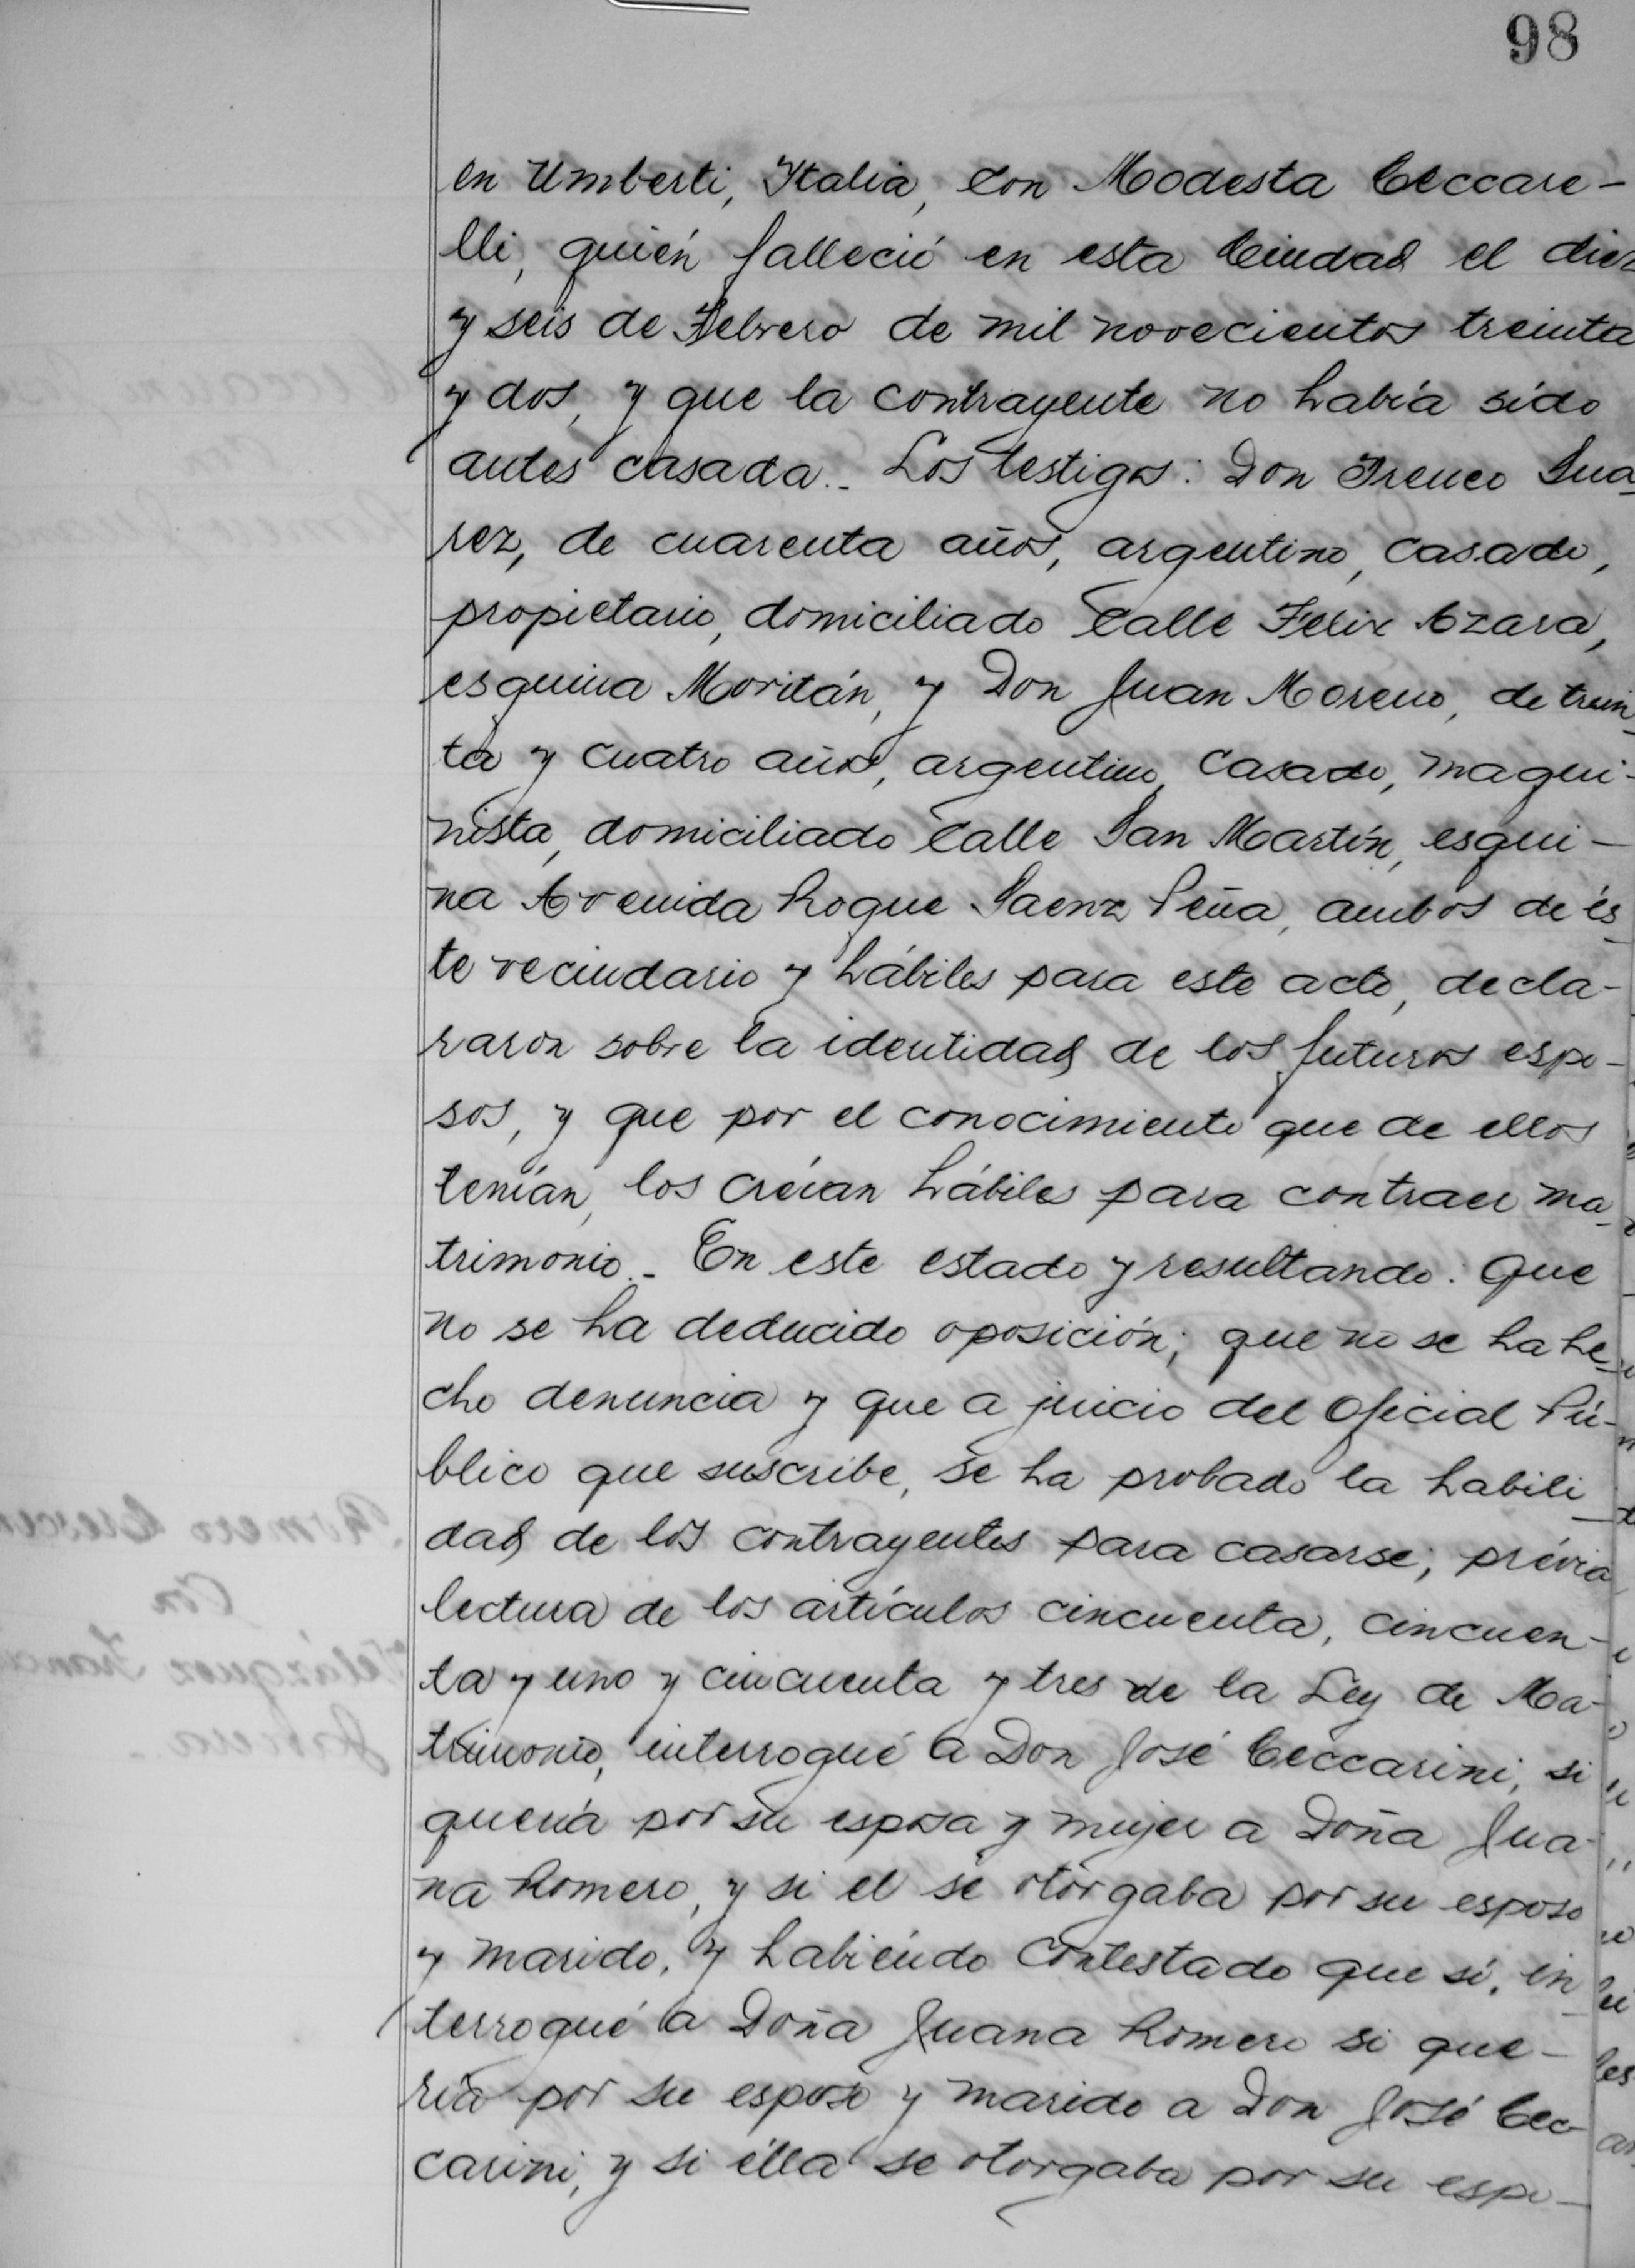 98
en Umberti, Italia, con Modesta Ceccare-
lli, quién falleció en esta Ciudad el diez
y seis de Febrero de mil novecientos treinta
y dos, y que la contrayente no había sido
antes casada.- Los testigos: Don Ireneo Sua-
rez, de cuarenta años, argentino, casado,
propietario, domiciliado Calle Felix Azara,
esquina Moritán, y Don Juan Moreno, de trein-
ta y cuatro años, argentino, casado, maqui-
nista, domiciliado Calle San Martín, esqui-
na Avenida Roque Saenz Peña, ambos de és-
te vecindario y hábiles para este acto, decla-
raron sobre la identidad de los futuros espo-
sos, y que por el conocimiento que de ellos
tenían, los creían hábiles para contraer ma-
trimonio.- En este estado y resultando: Que
no se ha deducido oposición; que no se ha he-
cho denuncia y que a juicio del Oficial Pú-
blico que suscribe, se ha probado la habili-
dad de los contrayentes para casarse; prévia
lectura de los artículos cincuenta, cincuen-
ta y uno y cincuenta y tres de la Ley de Ma-
trimonio, interrogué a Don José Ceccarini, si
quería por su esposa y mujer a Doña Jua-
na Romero, y si el se otorgaba por su esposo
y marido, y habiendo contestado que sí, in-
terrogué a Doña Juana Romero si que-
ría por su esposo y marido a Don José Cec-
carini, y si élla se otorgaba por su espo-